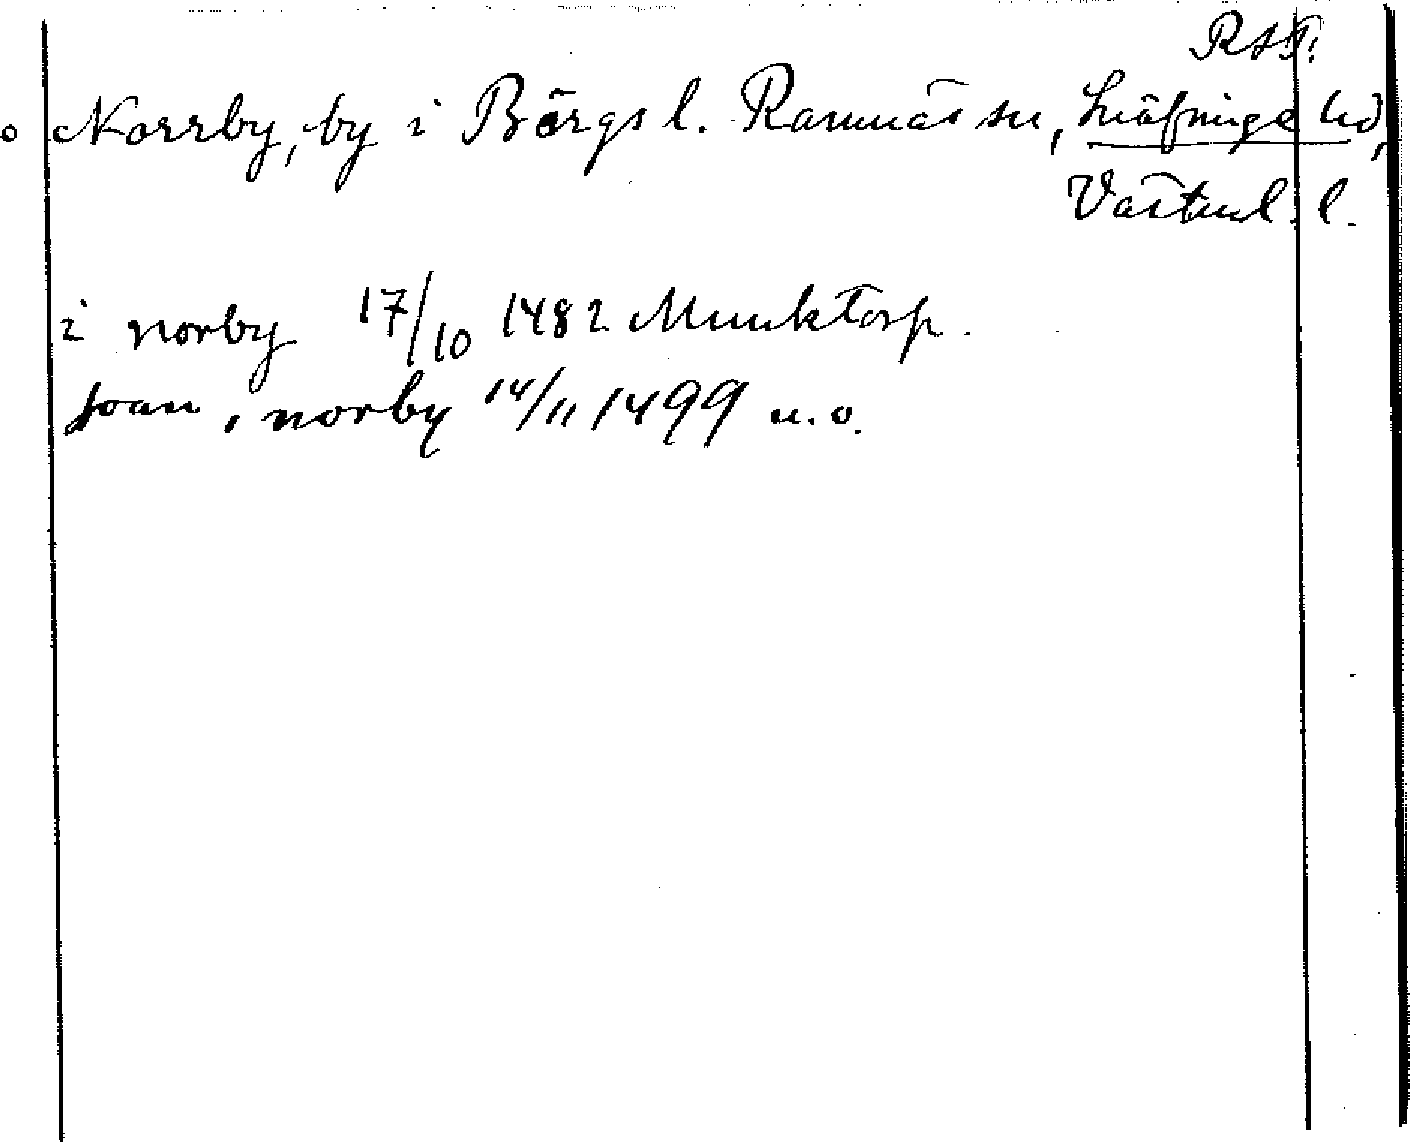 RSP.
o Norrby, by i Bärgs l. Ramnäs sn, Snäfringe hd,
Västml. l.
i norby 17/10 1482 Munktorp.
joan, norby 14/11 1499 u.o.